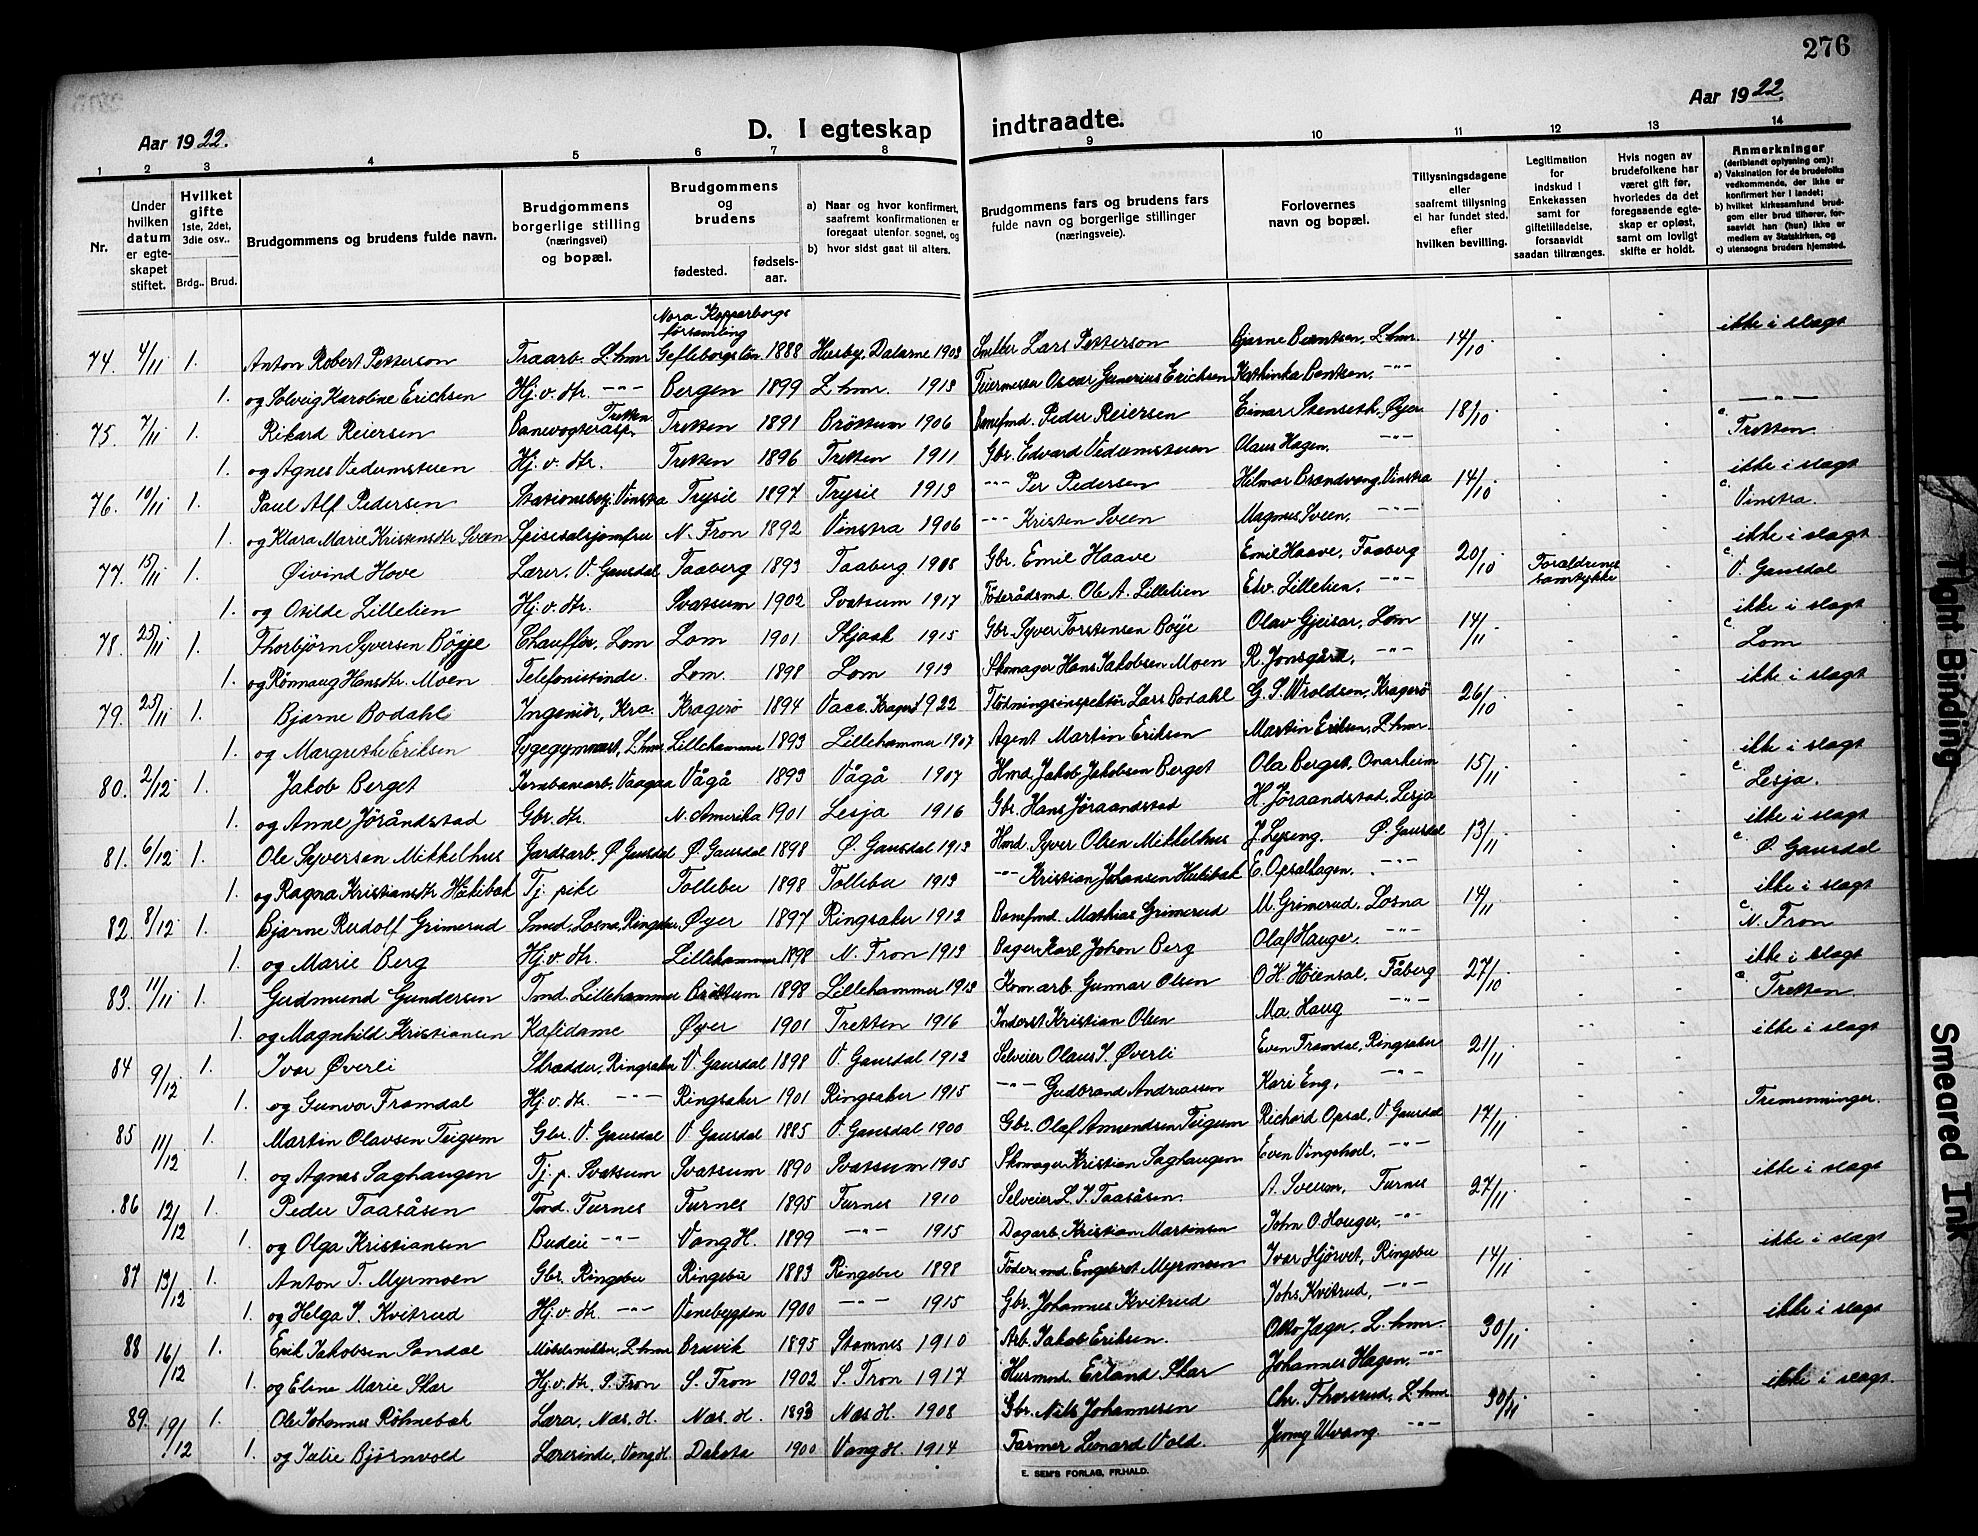 276
Aar 1922.
D. I egteskap indtraadte.
Aar 1922.
1 2 3 4 5 6 7 8 9 10 11 12 13 14
Nr.
Under hvilken datum er egteskapet stiftet.
Hvilket gifte 1ste, 2det, 3die osv..
Brdg.. Brud.
Brudgommens og brudens fulde navn.
Brudgommens borgerlige stilling (næringsvei) og bopæl.
Brudgommens og brudens
fødested. fødselsaar.
a) Naar og hvor konfirmert, saafremt konfirmationen er foregaat utenfor sognet, og
b) hvor sidst gaat til alters.
Brudgommens fars og brudens fars fulde navn og borgerlige stillinger (næringsveie).
Forlovernes navn og bopæl.
Tillysningsdagene eller saafremt tillysning ei har fundet sted. efter hvilken bevilling.
Legitimation for indskud i Enkekassen samt for giftetilladelse, forsaavidt saadan tiltrænges.
Hvis nogen av brudefolkene har været gift før, hvorledes da det foregaaende egteskap er opløst, samt om lovligt skifte er holdt.
Anmerkninger (deriblandt oplysning om):
a) Vaksination for de brudefolks vedkommende, der ikke er konfirmert her i landet;
b) hvilket kirkesamfund brudgom eller brud tilhører, forsaavidt han (hun) ikke er medlem av Statskirken, og
c) utensogns bruders hjemsted.
Nora Kopparbergs församling
74. 4/11 1. Anton Robert Petterson Traarb. L.hmr Gefleborgs län 1888 Husby, Dalarne 1903 Smller Lars Petterson Bjarne Berntsen, L.hmr. 14/10. - - ikke i slagt
1. og Solveig Karoline Erichsen Hj.v.dtr. -"- Bergen 1899 L.hmr. 1913 Feiermester Oscar Gunerius Erichsen Kathinka Bentsen, -"- - -
75. 7/11 1. Rikard Reiersen Banevogterasp. Tretten Tretten 1891 Brøttum 1906 Banefmd. Peder Reiersen Einar Stenseth, Øyer 18/10. - - -"-
1. og Agnes Vedumstuen Hj.v.dtr. Tretten 1896 Tretten 1911 Gbr. Edvard Vedumstuen Olaus Hagen, -"- - - c. Tretten.
76. 10/11 1. Paul Alf Pedersen Stationsbetj. Vinstra Trysil 1897 Trysil 1913 -"- Per Pedersen Helmar Brandvang, Vinstra 14/10. - - ikke i slagt
1. og Klara Marie Kristensdtr Sveen Spisesalsjomfru N. Fron 1892 Vinstra 1906 -"- Kristen Sveen Magnus Sveen, -"- - - c. Vinstra.
77. 15/11 1. Øivind Hove Lærer, V. Gausdal Faaberg 1893 Faaberg 1908 Gbr. Emil Haave Emil Haave, Faaberg 20/10 Forældrenes samtykke - ikke i slagt
1. og Osilde Lillelien Hj.v.dtr. Svatsum 1902 Svatsum 1917 Föderådsmd. Ole A. Lillelien Edv. Lillelien, -"- - - c. V. Gausdal
78. 25/11 1. Thorbjörn Syversen Böyje Chauffør, Lom Lom 1901 Skjaak 1915 Gbr. Syver Torstensen Böye Olav Gjeisar, Lom 14/11 - - ikke i slagt
1. og Rönnaug Hansdtr. Moen Telefonistinde. Lom. 1898 Lom 1913 Skomager Hans Jakobsen Moen R. Jonsgård, -"- - - c. Lom
79. 25/11 1. Bjarne Bodahl Ingeniör, Kra. Kragerö 1894 Vacc. Kragerö 1922 Flötningsinspektör Lars Bodahl G. S. Wroldsen, Kragerö 26/10. - - ikke i slagt
1. og Margrethe Eriksen Sygegymnast, L.hmr. Lillehammer 1893 Lillehammer 1907 Agent Martin Eriksen Martin Eriksen, L.hmr. - -
80. 2/12 1. Jakob Berget Jernbanearb. Vaagaa Vågå 1893 Vågå 1907 Hmd. Jakob Jakobsen Berget Ola Berget, Onarheim 15/11. - - ikke i slagt
1. og Anne Jöråndstad Gbr. dtr. N. Amerika 1901 Lesja 1916 Gbr. Hans Jöraandstad H. Jöraandstad, Lesja - - c. Lesja.
81. 6/12 1. Ole Syversen Mikkelhus Gardsarb. Ø. Gausdal Ø. Gausdal 1898 Ø. Gausdal 1913 Hmd. Syver Olsen Mikkelhus J. Lyseng. Ø. Gausdal 13/11. - - ikke i slagt
1. og Ragna Kristiansdtr Håkibak Tj. pike Follebu 1898 Follebu 1913 -"- Kristian Johansen Hukibak E. Opsalhagen. -"- - - c. Ø. Gausdal
82. 8/12 1. Bjarne Rudolf Grimerud Smed, Losna, Ringebu Øyer 1897 Ringsaker 1912 Banefmd. Mathias Grimerud M. Grimerud, Losna 14/11. - - ikke i slagt
1. og Marie Berg Hj.v.dtr. Lillehammer 1898 N. Fron 1913 Bager Karl Johan Berg Olaf Hauger, -"- - - c. N. Fron
83. 11/11 1. Gudmund Gundersen Tmd. Lillehammer Brøttum 1898 Lillehammer 1913 Kom. arb. Gunnar Olsen O. H. Höiensal, Fåberg 27/10. - - ikke i slagt
1. og Magnhild Kristiansen Kafedame Øyer 1901 Tretten 1916 Inderst Kristian Olsen Ma. Haug -"- - - c. Tretten.
84 9/12 1. Ivar Øverli Skrædder, Ringsaker V. Gausdal 1898 V. Gausdal 1912 Selveier Olaus I. Øverli Even Framdal, Ringsaker 21/11. - - ikke i slagt
1. og Gunvor Framdal Hj.v.dtr. -"- Ringsaker 1901 Ringsaker 1915 -"- Gudbrand Andreassen Kari Eng, -"- - -
85 11/12 1. Martin Olavsen Teigum Gbr. V. Gausdal V. Gausdal 1885 V. Gausdal 1900 Gbr. Olaf Amundsen Teigum Richard Opsal, V. Gausdal 17/11. - - Tremenninger.
1. og Agnes Saghaugen Tj. p. Svatsum Svatsum 1890 Svatsum 1905 Skomager Kristian Saghaugen Even Vingehoel, -"- - -
86 12/12 1. Peder Taasåsen Tmd. Furnes Furnes 1895 Furnes 1910 Selveier L. J. Taasåsen. A. Sveum, Furnes 27/11. - - ikke i slagt
1. og Olga Kristiansen Budeie -"- Vang H. 1899 -"- 1915 Dagarb. Kristian Martinsen John O. Hauger, -"- - -
87 13/12 1. Anton T. Myrmoen Gbr. Ringebu Ringebu 1883 Ringebu 1898 Föder. md. Engebret Myrmoen Ivar Hjörvet, Ringebu 14/11. - - ikke i slagt
1. og Helga J. Kvitrud Hj.v.dtr. -"- Venebygden 1900 -"- 1915 Gbr. Johannes Kvitrud Johs. Kvitrud, -"- - -
88 16/12 1. Erik Jakobsen Sandal Möbelsnekker, L.hmr Bruvik 1895 Stamnes 1910 Arb. Jakob Eriksen. Otto Jager, L.hmr. 30/11. - - ikke i slagt
1. og Eline Marie Skar Hj.v.dtr, S. Fron S. Fron 1902 S. Fron 1917 Husmnd. Erland Skar Johannes Hagen, -"- - -
89. 19/12 1. Ole Johannes Röhnebak Lærer, Næs. H. Næs. H. 1893 Næs H. 1908 Gbr. Nils Johannesen Chr. Thorsrud, L.hmr 30/11. - - ikke i slagt.
1. og Julie Bjørnvold Lærerinde, Vang H. Dakota 1900 Vang H. 1914 Farmer Leonard Vold. Jenny Ulvang. -"-
E. SEM'S FORLAG, FR.HALD.
Tight Binding
Smeared Ink